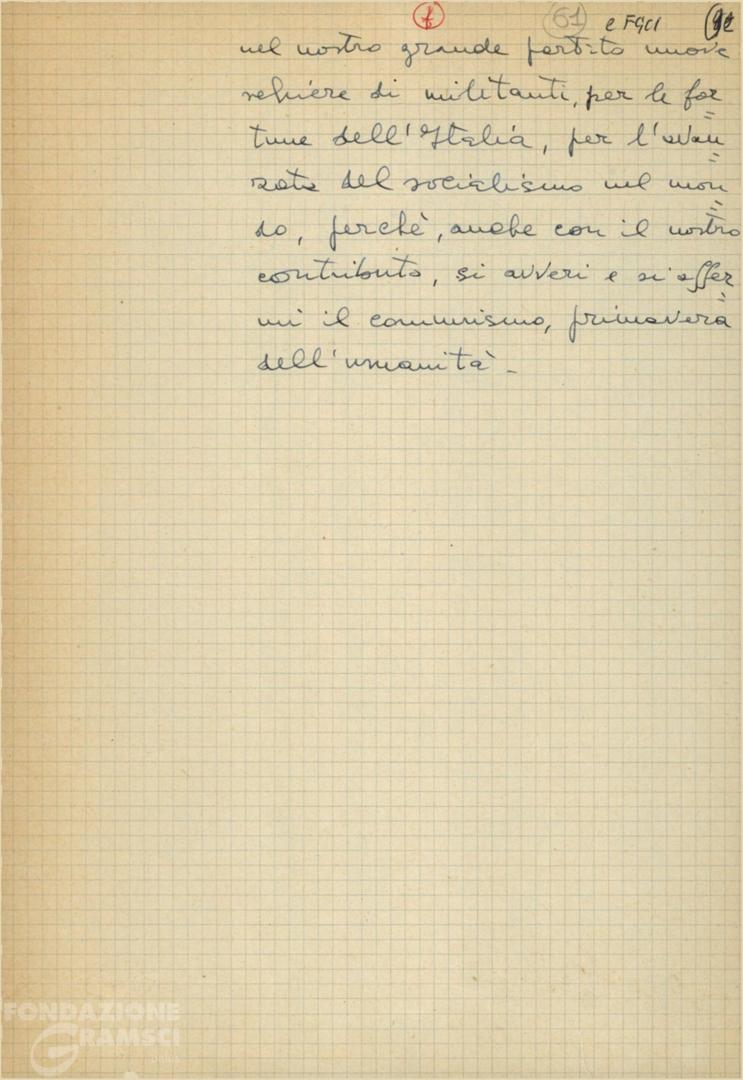 61 e FGCI
nel nostro grande partito nuove
schiere di militanti, per le for=
tune dell'Italia, per l'avan=
zata del socialismo nel mon=
do, perchè, anche con il nostro
contributo, si avveri e si affer=
mi il comunismo, primavera
dell'umanità -
FONDAZIONE
GRAMSCI